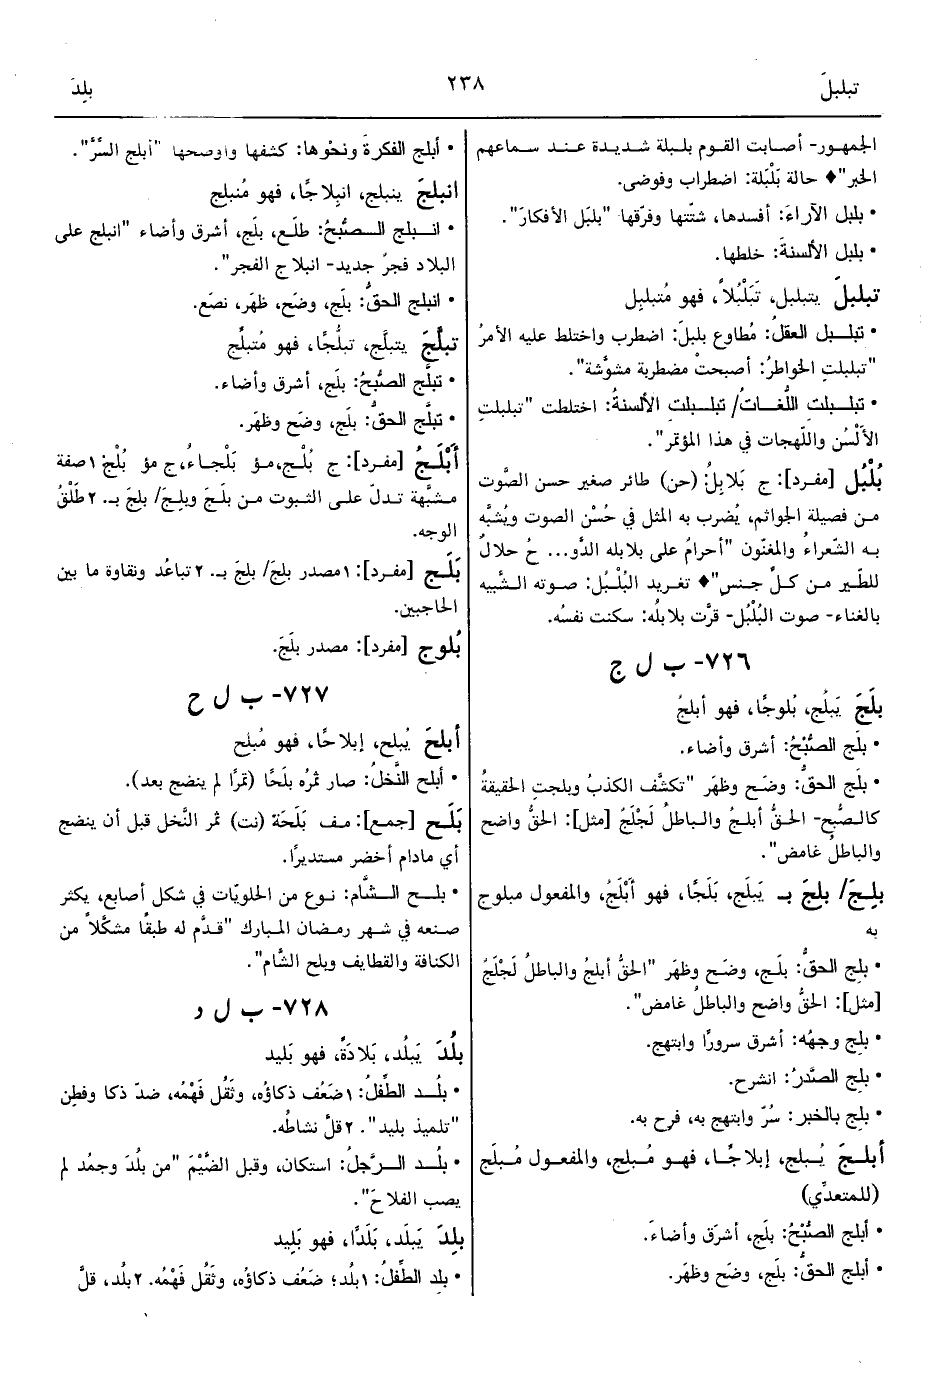 تبلبلَ
٢٣٨
بلِدَ
الجمهور- أصابت القوم بلبلة شديدة عند سماعهم
الخبر"♦ حالة بَلْبَلة: اضطراب وفوضى.
• بلبل الآراءَ: أفسدها، شتّتها وفرّقها "بلبَل الأفكارَ".
• بلبل الألسنةَ: خلطها.
تبلبلَ يتبلبل، تَبَلْبُلاً، فهو مُتبلبِل
• تبلبل العقلُ: مُطاوع بلبلَ: اضطرب واختلط عليه الأمرُ
"تبلبلتِ الخواطرُ: أصبحتْ مضطربة مشوَّشة".
• تبلبلت اللُّغات/ تبلبلت الألسنةُ: اختلطت "تبلبلتِ
الألْسُن واللّهجات في هذا المؤتمر".
بُلْبُل [مفرد]: ج بَلابِلُ (حن) طائر صغير حسن الصَّوت
من فصيلة الجواثم، يُضرب به المثل في حُسْن الصوت ويُشبَّه
به الشّعراءُ والمغنّون "أحرامُ على بلابله الدَّو... حُ حلالٌ
للطّير من كلِّ جنس"♦ تغريد البُلْبُل: صوته الشَّبيه
بالغناء- صوت البُلْبُل- قرَّت بلابلُه: سكنت نفسُه.
٧٢٦- ب ل ج
بلَجَ يَبلُج، بُلوجًا، فهو أبلجُ
• بلَج الصُّبْحُ: أشرق وأضاء.
• بلَج الحقُّ: وضَح وظهَر "تكشَّف الكذبُ وبلجتِ الحقيقةُ
كالصُّبحِ- الحقُّ أبلجُ والباطلُ لَجْلَجُ [مثل]: الحقُّ واضح
والباطلُ غامض".
بلِجَ/ بلِجَ بـ يَبلَج، بَلَجًا، فهو أَبْلَجُ، والمفعول مبلوج
به
• بلِج الحقُّ: بلَج، وضَح وظهَر "الحقُّ أبلجُ والباطلُ لَجْلَجُ
[مثل]: الحقُّ واضح والباطلُ غامض".
• بلِج وجهُه: أشرق سرورًا وابتهج.
• بلِج الصَّدرُ: انشرح.
• بلِج بالخبر: سُرّ وابتهج به، فرح به.
أبلجَ يُبلج، إبلاجًا، فهو مُبلج، والمفعول مُبلَج
(للمتعدِّي)
• أبلج الصُّبْحُ: بلَج، أشرَق وأضاءَ.
• أبلج الحقُّ: بلَج، وضَح وظهَر.
• أبلج الفكرةَ ونحوها: كشفها وأوضحها "أبلج السِّرَّ".
انبلجَ ينبلج، انبِلاجًا، فهو مُنبلِج
• انبلج الصُّبحُ: طلَع، بلَج، أشرق وأضاء "انبلج على
البلاد فجرٌ جديد- انبلاج الفجر".
• انبلج الحقُّ: بلَج، وضَح، ظهَر، نصَع.
تبلَّجَ يتبلَّج، تبلُّجًا، فهو مُتبلِّج
• تبلَّج الصُّبحُ: بلَج، أشرق وأضاء.
• تبلَّج الحقُّ: بلَج، وضَح وظهَر.
أَبْلَجُ [مفرد]: ج بُلْج، مؤ بَلْجاءُ، ج مؤ بُلْج: ١صفة
مشبَّهة تدلّ على الثبوت من بلَجَ وبلِجَ/ بلِجَ بـ. ٢ طَلْقُ
الوجه.
بَلَج [مفرد]: ١ مصدر بلِجَ/ بلِجَ بـ. ٢ تباعُد ونقاوة ما بين
الحاجبين.
بُلوج [مفرد]: مصدر بلَجَ.
٧٢٧- ب ل ح
أبلحَ يُبلح، إبلاحًا، فهو مُبلح
• أبلح النَّخلُ: صار ثمرُه بلَحًا (تمرًا لم ينضج بعد).
بَلَح [جمع]: مف بَلَحَة (نت) ثمر النَّخل قبل أن ينضج
أي مادام أخضر مستديرًا.
• بلح الشَّام: نوع من الحلويّات في شكل أصابع، يكثر
صنعه في شهر رمضان المبارك "قدَّم له طبقًا مشكَّلاً من
الكنافة والقطايف وبلح الشَّام".
٧٢٨- ب ل د
بلُدَ يَبلُد، بَلادَةً، فهو بَليد
• بلُد الطِّفلُ: ١ ضعُف ذكاؤه، وثقُل فَهْمُه، ضدّ ذكا وفطِن
"تلميذ بليد". ٢ قلّ نشاطُه.
• بلُد الرَّجلُ: استكان، وقبِل الضَّيْمَ "من بلُدَ وجمُد لم
يصب الفلاحَ".
بلِدَ يَبلَد، بَلَدًا، فهو بَليد
• بلِد الطِّفلُ: ١ بلُد؛ ضعُف ذكاؤه، وثقُل فَهْمُه. ٢ بلُد، قلَّ